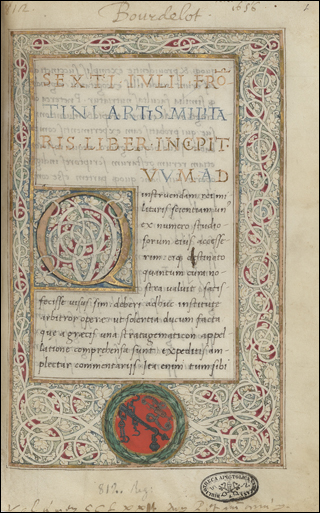 812.
Bourdelot.
1656
SEXTI IVLII FRŌ
TINI ARTIS MILITA
RIS LIBER INCIPIT
VVM AD
Q
instruendam rei mi
litaris scientiam un
ex numero studio
sorum eius accesse
rim: eiq; destinato
quantum cura no
stra valuit satis
fecisse visus sim: debere adhuc institute
arbitror opere: ut solertia ducum facta
quae a graecis una stratagematicon appel
latione comprehensa sunt expeditis am
plectar commentarijs ita enim tum sibi
812. Reg.
APOSTOLICA